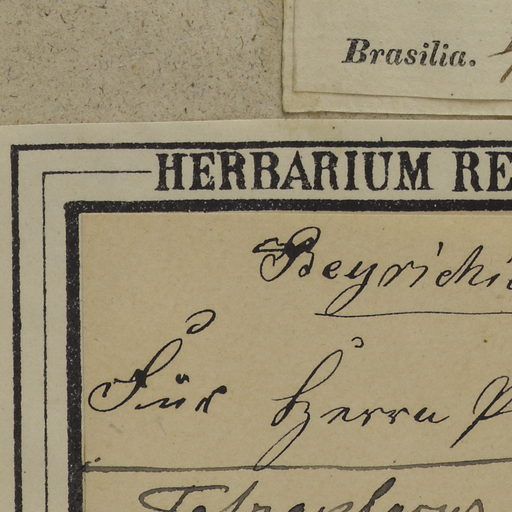 Brasilia.
HERBARIUM RE
Beyrichi
Für Herrn P